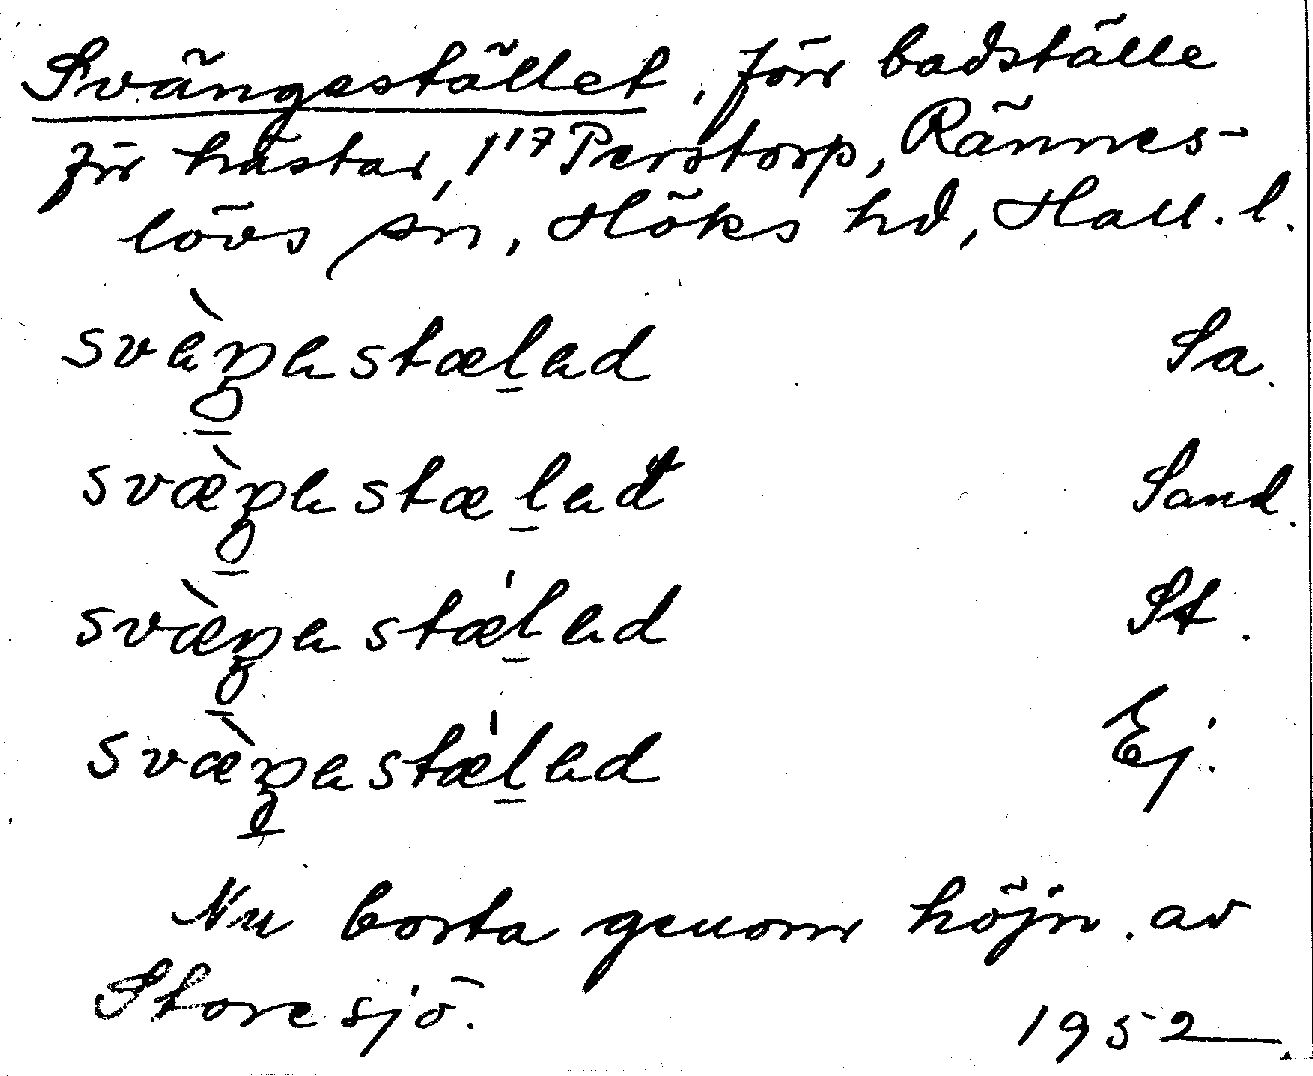 Svängestället, förr badställe
för hästar, 1¹⁷ Perstorp, Rännes-
lövs sn, Höks hd, Hall. l.
svàŋastælad Sa.
svæ̀ŋastælad Sand.
svæ̀ŋastæ'lad St.
svæ̀ŋastæ'lad Ej.
Nu borta genom höjn. av
Store sjö.
1952